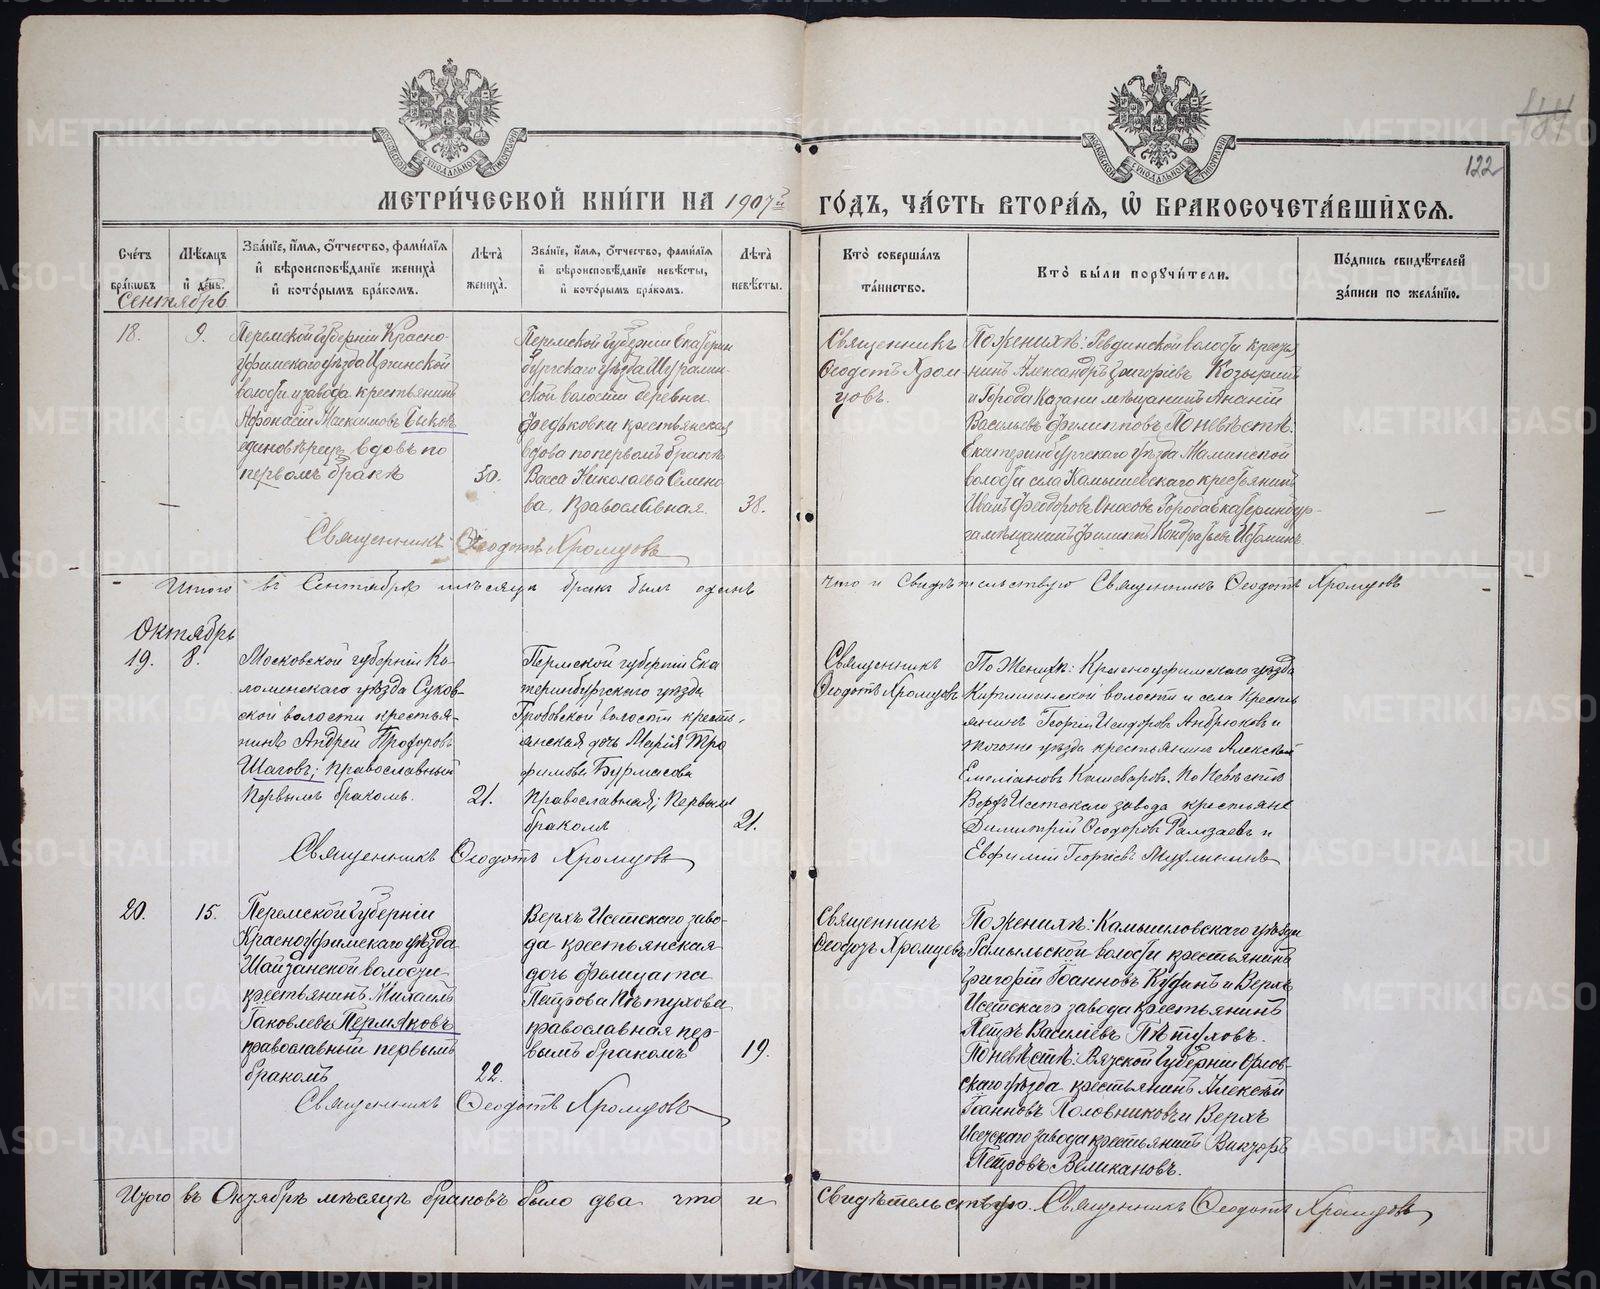 122
МЕТРИ́ЧЕСКОЙ КНИ́ГИ НА 1907й ГО́ДЪ, ЧА́СТЬ ВТОРА́Я, Ѡ БРАКОСОЧЕТА́ВШИХСЯ.
Сче́тъ бра́кωвъ
Мѣ́сяцъ и҆ де́нь.
Зва́нїе, и҆́мя, о҆́тчество, фами́лїя и҆ вѣроисповѣ́данїе жениха̀ и҆ кото́рымъ бра́комъ.
Лѣ́та жениха̀.
Зва́нїе, и҆́мя, о҆́тчество, фами́лїя и҆ вѣроисповѣ́данїе невѣ́сты, и҆ кото́рымъ бра́комъ.
Лѣ́та невѣ́сты.
Кто̀ соверша́лъ та́инство.
Кто̀ бы́ли порꙋчи́тели.
По́дпись свидѣ́телей за́писи по жела́нїю.
Сентябрь
18.
9.
Пермской губерніи Красно-
уфимскаго уѣзда Иргинской
волости и завода крестьянинъ
Афонасій Максимовъ Быковъ
единовѣрецъ, вдовъ по
первомъ бракѣ
50.
Пермской губерніи Екатерин
бургскаго уѣзда
ской волости деревни
Федьковки крестьянская
вдова по первомъ бракѣ
Васса Николаева Семено
ва, Православная.
38.
Священникъ
Ѳеодотъ Хром-
цовъ.
По женихѣ: Ревдинской волости кресть
нинъ Александръ Григоріевъ Козырин
и Города Казани мѣщанинъ Ананій
Васильевъ Филипповъ. По невѣстѣ:
Екатеринбургскаго уѣзда Маминской
волости села Камышевскаго крестьянинъ
Иванъ Феодоровъ Города Екатеринбур-
га мѣщанинъ Филиппъ Кондратьевъ
Священникъ Ѳеодотъ Хромцовъ
Итого въ Сентябрѣ мѣсяцѣ бракъ былъ одинъ что и Свидѣтельствую Священникъ Ѳеодотъ Хромцовъ
Октябрь
19.
8.
Московской губерніи Ко-
ломенскаго уѣзда Суков-
ской волости крестья-
нинъ Андрей Прохоровъ
Шаговъ; Православный
Первымъ бракомъ.
21.
Пермской губерніи Ека
теринбургскаго уѣзда
Гробовской волости кресть-
янская дочь Марія Тро
фимова Бурмасова
Православная; Первымъ
бракомъ
21.
Священникъ
Ѳеодотъ Хромцовъ
По Женихѣ: Красноуфимскаго уѣзда
волости и села Кресть
янинъ Георгій Исидоровъ Андрюковъ и
тогоже уѣзда крестьянинъ Алексѣй
Емеліановъ Кашеваровъ. По Невѣстѣ
Верхъ Исетскаго завода крестьяне
Димитрій Ѳеодоровъ и
Евфимій Георгіевъ
Священникъ Ѳеодотъ Хромцовъ
20.
15.
Пермской Губерніи
Красноуфимскаго уѣзда
Шайтанской волости
крестьянинъ Михаилъ
Іаковлевъ Пермяковъ
православный первымъ
бракомъ
22.
Верхъ Исетскаго заво-
да крестьянская
дочь Фелицата
Петрова Пѣтухова
православная пер-
вымъ бракомъ
19.
Священникъ
Ѳеодотъ Хромцовъ
По женихѣ: Камышловскаго уѣзда
Рамыльской волости крестьянинъ
Григорій Іоанновъ и Верхъ
Исетскаго завода крестьянинъ
Петръ Василіевъ Пѣтуховъ.
По невѣстѣ: Вятской Губерніи Орлов-
скаго уѣзда крестьянинъ Алексѣй
Іоанновъ Половниковъ и Верхъ
Исетскаго завода крестьянинъ Викторъ
Петровъ Великановъ.
Священникъ Ѳеодотъ Хромцовъ
Итого въ Октябрѣ мѣсяцѣ браковъ было два что и свидѣтельствую. Священникъ Ѳеодотъ Хромцовъ
METRIKI.GASO-URAL.RU